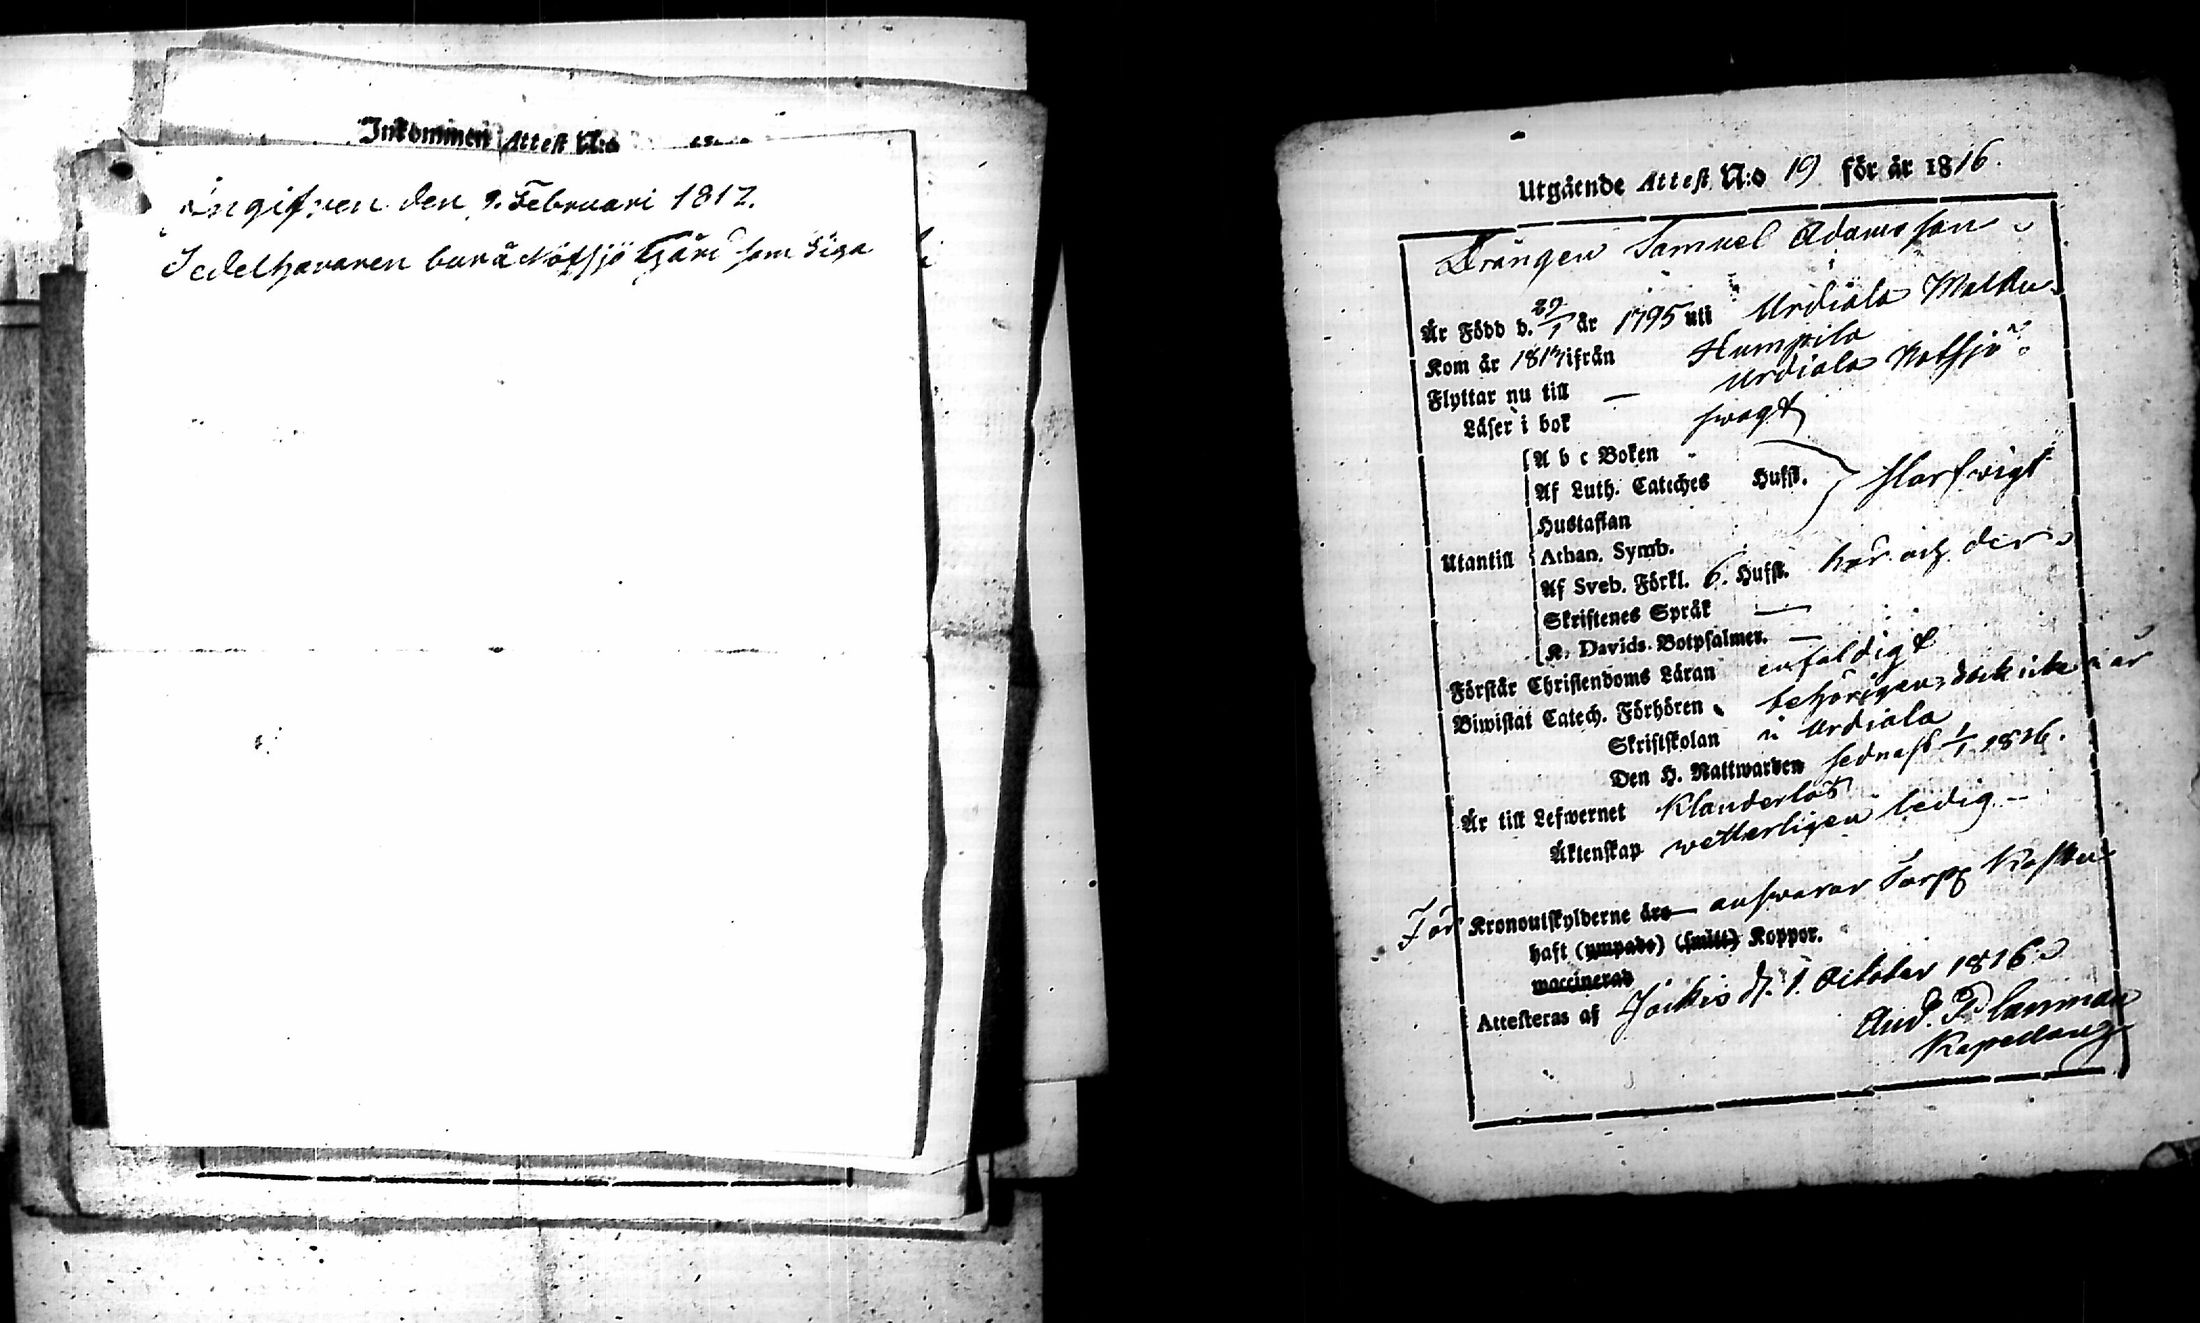 Inkommen Attest N:o
Ingifven den 9. Februari 1817.
Sedelhavaren bor å Notsjö Gård som Piga
Utgående Attest N:o 19 för år 1816.
Drängen Samuel Adamsson
Är Född d. 29/1 år 1795 uti Urdiala Matku
Kom år 1813 ifrån Humpila
Flyttar nu till — Urdiala Notsjö
Läser i bok swagt
A b c Boken
Af Luth. Cateches Hufst. klarswigt
Hustaflan
Utantill Athan. Symb.
Af Sveb. Förkl. 6. Hufst. här och der
Skriftenes Språk —
K. Davids Botpsalmer. —
Förstår Christendoms Läran enfaldigt
Biwistat Catech. Förhören behörigen, dock icke i år
Skriftskolan i Urdiala
Den H. Nattwarden sednast 1/1 1816.
Är till Lefwernet Klanderlös
Äktenskap wetterligen ledig
För Kronoutskylderne äro — answarar Torp
haft (ympade) (smitt) Koppor.
waccinerad
Attesteras af Jockis d. 1. October 1816.
And. Planman
Kapellan